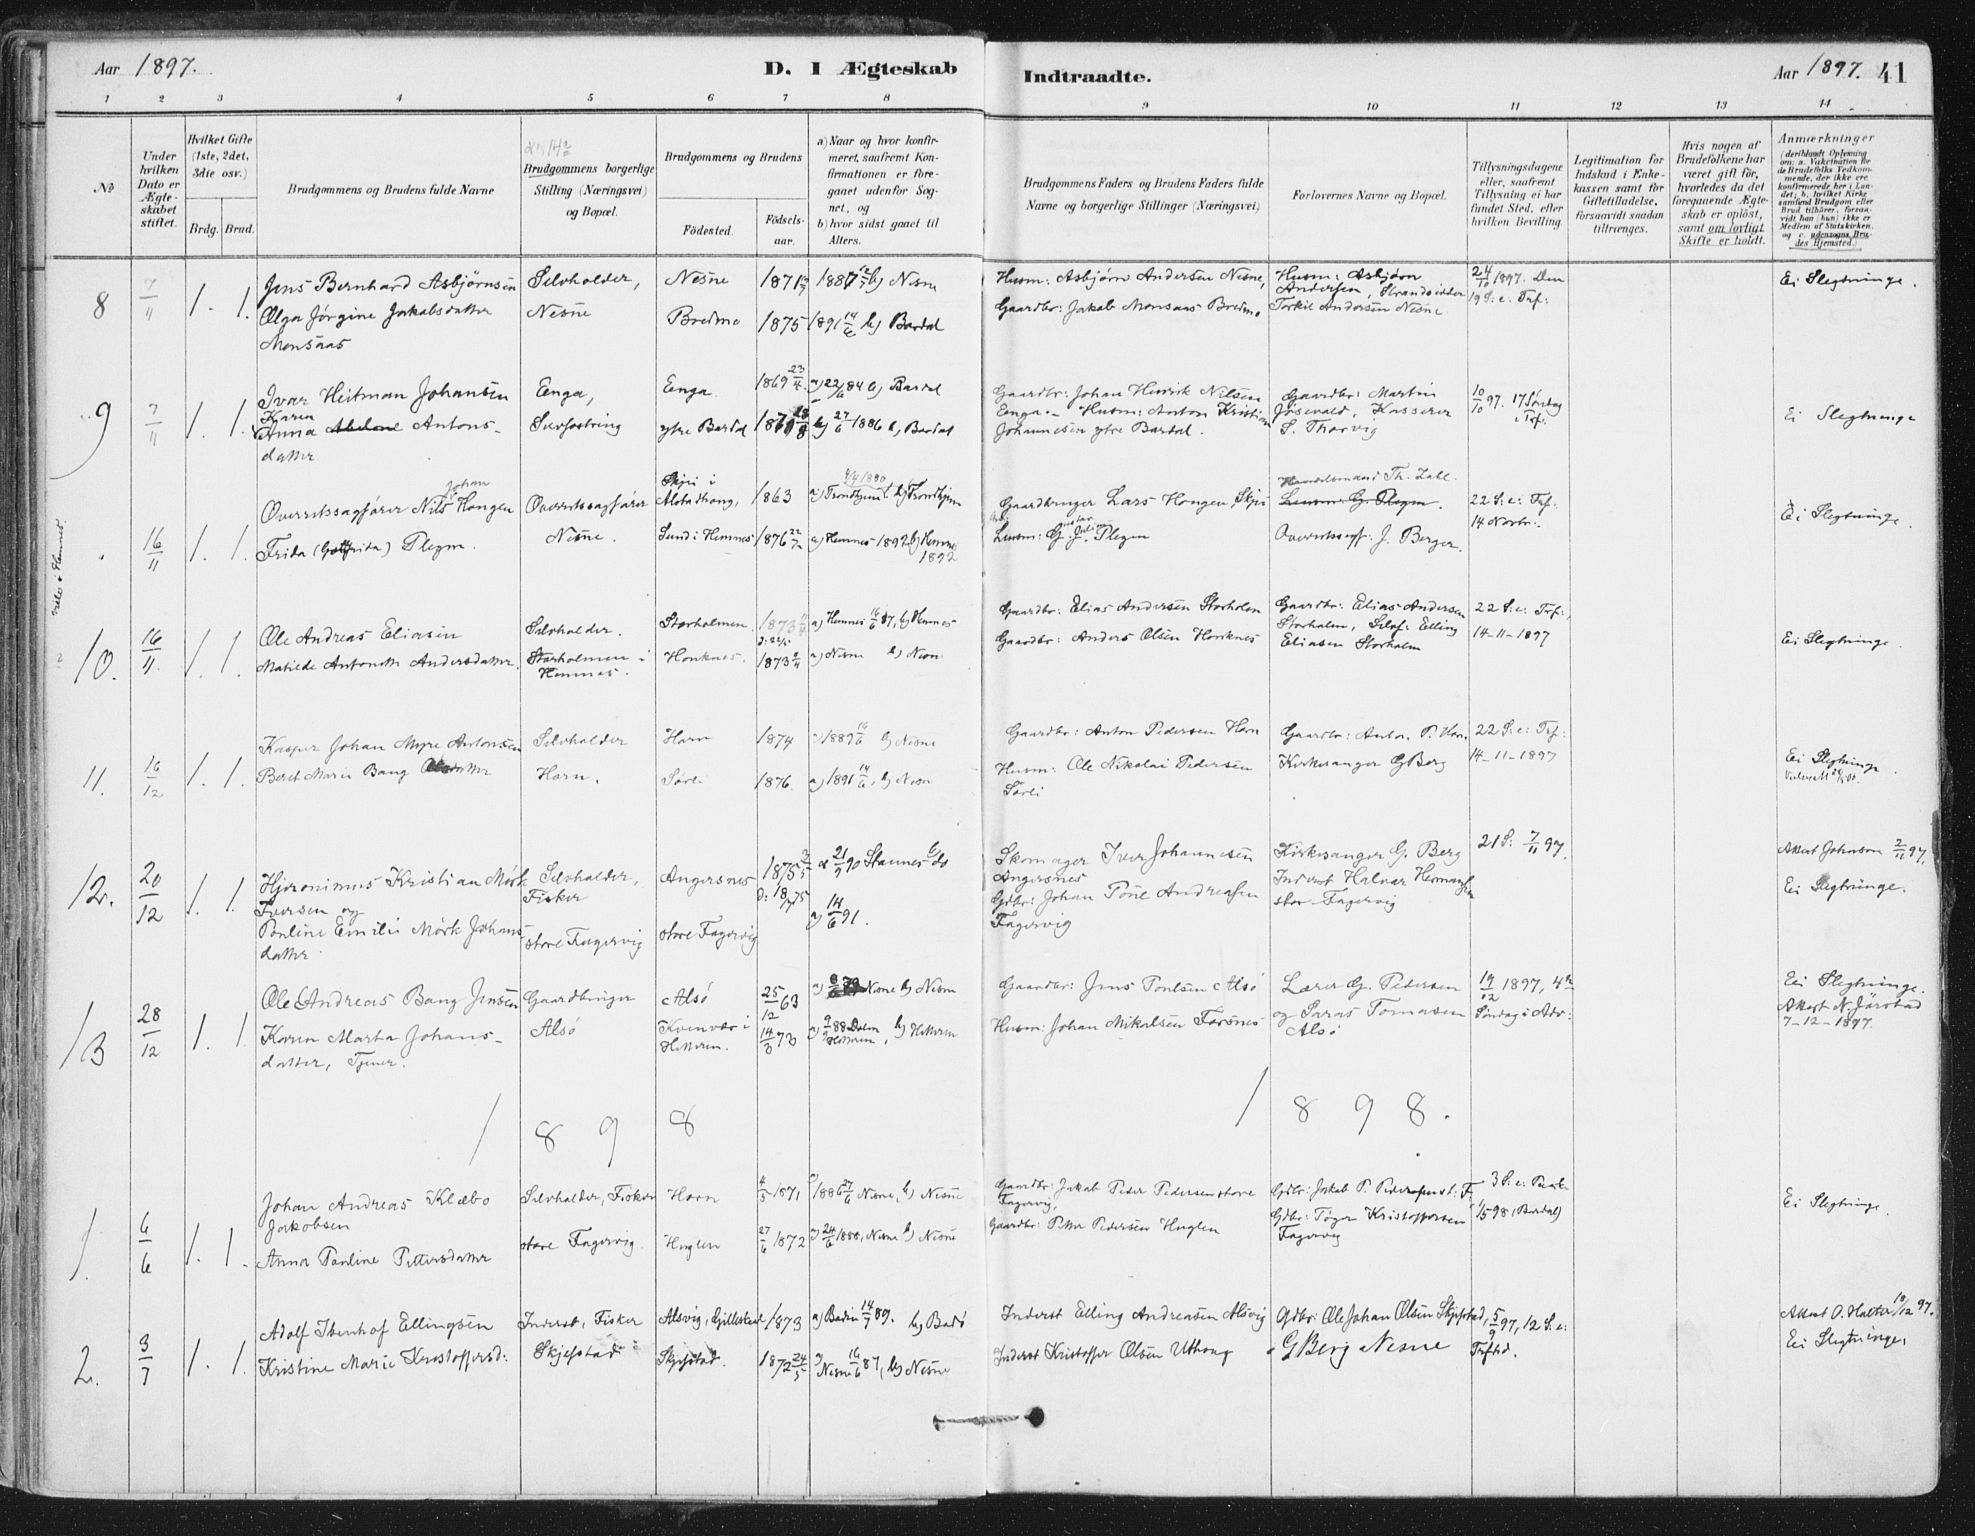 Aar 1897.
D. I Ægteskab
Indtraadte.
Aar 1897. 41
1 2 3 4 5 6 7 8 9 10 11 12 13 14
No
Under hvilken Dato er Ægteskabet stiftet.
Hvilket Gifte (1ste, 2det, 3die osv.)
Brdg. Brud.
Brudgommens og Brudens fulde Navne
Brudgommens borgerlige Stilling (Næringsvei) og Bopæl.
Brudgommens og Brudens
Fødested.
Fødselsaar.
a) Naar og hvor konfirmeret, saafremt Konfirmationen er foregaaet udenfor Sognet, og
b) hvor sidst gaaet til Alters.
Brudgommens Faders og Brudens Faders fulde Navne og borgerlige Stillinger (Næringsvei)
Forlovernes Navne og Bopæl.
Tillysningsdagene eller, saafremt Tillysning ei har fundet Sted, efter hvilken Bevilling
Legitimation for Indskud i Enkekassen samt for Giftetilladelse, forsaavidt saadan tiltrænges.
Hvis nogen af Brudefolkene har været gift før, hvorledes da det foregaaende Ægteskab er opløst, samt om lovligt Skifte er holdt.
Anmærkninger
(deriblandt Oplysning om: a. Vakcination for de Brudefolks Vedkommende, der ikke ere konfirmerede her i Landet; b. hvilket Kirkesamfund Brudgom eller Brud tilhører, forsaavidt han (hun) ikke er Medlem af Statskirken. og c. udensogns Brudes Hjemsted.)
8 7/11 1. 1.
Jens Bernhard Asbjørnsen
Olga Jørgine Jakobsdatter
Monsaas
Selvholder,
Nesne
Nesne 1871
Bredmo 1875 1891 14/6 b) Bardal
b) Nesne
Husm: Asbjørn Andersen Nesne,
Gaardbr: Jakob Monsaas Bredmo
Husm: Asbjørn
Andersen, Strandsidder
Torkil Andersen Nesne
24/10 1897. Den
19 S: e: Tref:
Ei Slegtninge.
9 7/11 1. 1.
Ivar Heitman Johansen
Karen
Anna Antons-
datter
Enga,
Selvforstring
Enga 1869 23/4. a) 22/6 84 b) Bardal
ytre Bardal 27/6 1886 b) Bardal
Gaardbr: Johan Henrik Nilsen
Enga. - Husm: Anton Kristian
Johannesen ytre Bardal.
Gaardbr: Martin
Jøsevold, Kasserer
S. Thorvig
10/10 97. 17 Søndag
e Tref:
Ei Slegtninge
" 16/11 1. 1.
Johan
Overretssagfører Nils Hongen
Frida (Gottfrida) Plegm.
Overretssagfører
Nesne.
Skjei i
Alstadhaug, 1863
4/4 1880
a) Trondhjem. b) Trondhjem
Sund i Hemnes 1876 22/7 a) Hemnes 1892 b) Hemnes
1892
Gaardbruger Lars Hongen Skjei
Lensm: G. J. Plegm
Handelsmand Th. Zahl.
Lensm: G. Plegm.
Overretssagf: J. Berger.
22 S: e: Tref:
14 Novbr.
Ei Slegtninge.
Viet i Hemnes.
10. 16/11. 1. 1.
Ole Andreas Eliasen
Matilde Antonette Andersdatter.
Selvholder.
Storholmen i
Hemnes.
Storholmen. 1873 a) Hemnes 16/6 87, b) Hemnes
Honknes. 1873 a) Nesne b) Nesne
Gaardbr: Elias Andersen Storholm
Gaardbr: Anders Olsen Honknes
Gaardbr: Elias Andersen
Storholm, Selvf: Elling
Eliasen Storholm
22 S: e: Tref:,
14-11-1897
Ei Slegtninge.
11. 16/12 1. 1.
Kasper Johan Myre Antonsen
Beret Marie Bang
Selvholder
Horn.
Horn 1874 a) 1889 16/6 b) Nesne
Sørli 1876. a) 1891 14/6, b) Nesne
Gaardbr: Anton Pedersen Horn
Husm: Ole Nikolai Pedersen
Sørli
Gaardbr: Anton P. Horn.
Kirkesanger G Berg
22 S: e: Tref:
14-11-1897
Ei Slegtninge.
12. 20/12 1. 1.
Hjeronimus Kristian Mørk
Iversen og
Pauline Emilie Mørk Johans-
datter
Selvholder,
Fisker
store Fagervig
Angersnes 1875 a) 21/9 90 Stamnes b) do
store Fagervig a) 14/6 91.
Skomager Iver Johannesen
Angersnes
Gdbr: Johan Povel Andreassen
Fagervig
Kirkesanger G. Berg
Inderst Halvar Hermansen
stor Fagervig
21 S. 7/11 97.
Attest Johnson 2/11 97.
Ei Slegtninge.
13 28/12 1. 1.
Ole Andreas Bang Jensen
Karen Marta Johans-
datter, Tjener.
Gaardbruger
Alsø
Alsø 25/12 63 a) Nesne b) Nesne
Kvenvær i
Hitteren. 14/3 73 a) 9/9 88 Dolm
Hitteren, b) Hitteren
Gaardbr: Jens Poulsen Alsø
Husm: Johan Mikalsen Forsnes
Lærer G. Pedersen
og Saras Tomasen
Alsø
19/12 1897, 4de
Søndag i Adv:
Ei Slegtninge.
Attest N. Jørstad
7-12-1897.
1 8 9 8
1 8 9 8.
1. 6/6 1. 1.
Johan Andreas Klæbo
Jakobsen
Anna Pauline Pettersdatter
Selvholder, Fisker
store Fagervig.
Horn 4/5 1871 a) 1886 27/6 Nesne, b) Nesne
Huglen 27/6 1872 a) 24/6 1888, Nesne b) Nesne
Gaardbr: Jakob Peter Pedersen store
Fagervig,
Gaardbr: Petter Pedersen Huglen
Gdbr: Jakob P. Pedersen st: F.
Gdbr: Tøger Kristoffersen
Fagervig
3 S: e: Paaske
1/5 98, (Bardal)
Ei Slegtninge.
2. 3/7 1. 1.
Adolf Ibenhof Ellingsen
Kristine Marie Kristoffersd:
Inderst, Fisker
Skjefstad
Alsvig, Gilleskaal 1873 a) Bodin 14/7 89. b) Bodø
Skjefstad. 1872 24/5 a) Nesne 16/6 87, b) Nesne
Inderst Elling Andreasen Alsvig
Inderst Kristoffer Olsen Uthaug
Gdbr: Ole Johan Olsen Skjefstad,
G Berg Nesne
5/9 97, 12 S: e:
Trefold.
Attest O. Halten 10/12 97.
Ei Slegtninge.